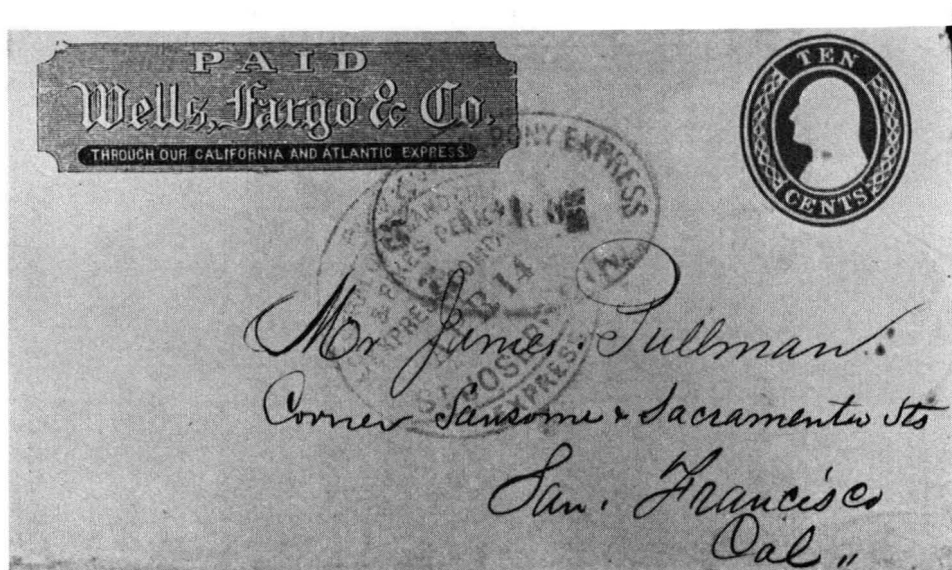 PAID
Wells, Fargo & Co.
THROUGH OUR CALIFORNIA AND ATLANTIC EXPRESS.
TEN
CENTS
PONY EXPRESS
& PIKES PEAK
EXPRESS COMPANY
14
ST JOSEPH
EXPRESS
Mr James. Pullman.
Corner Sansome & Sacramento Sts
San. Francisco
Cal „